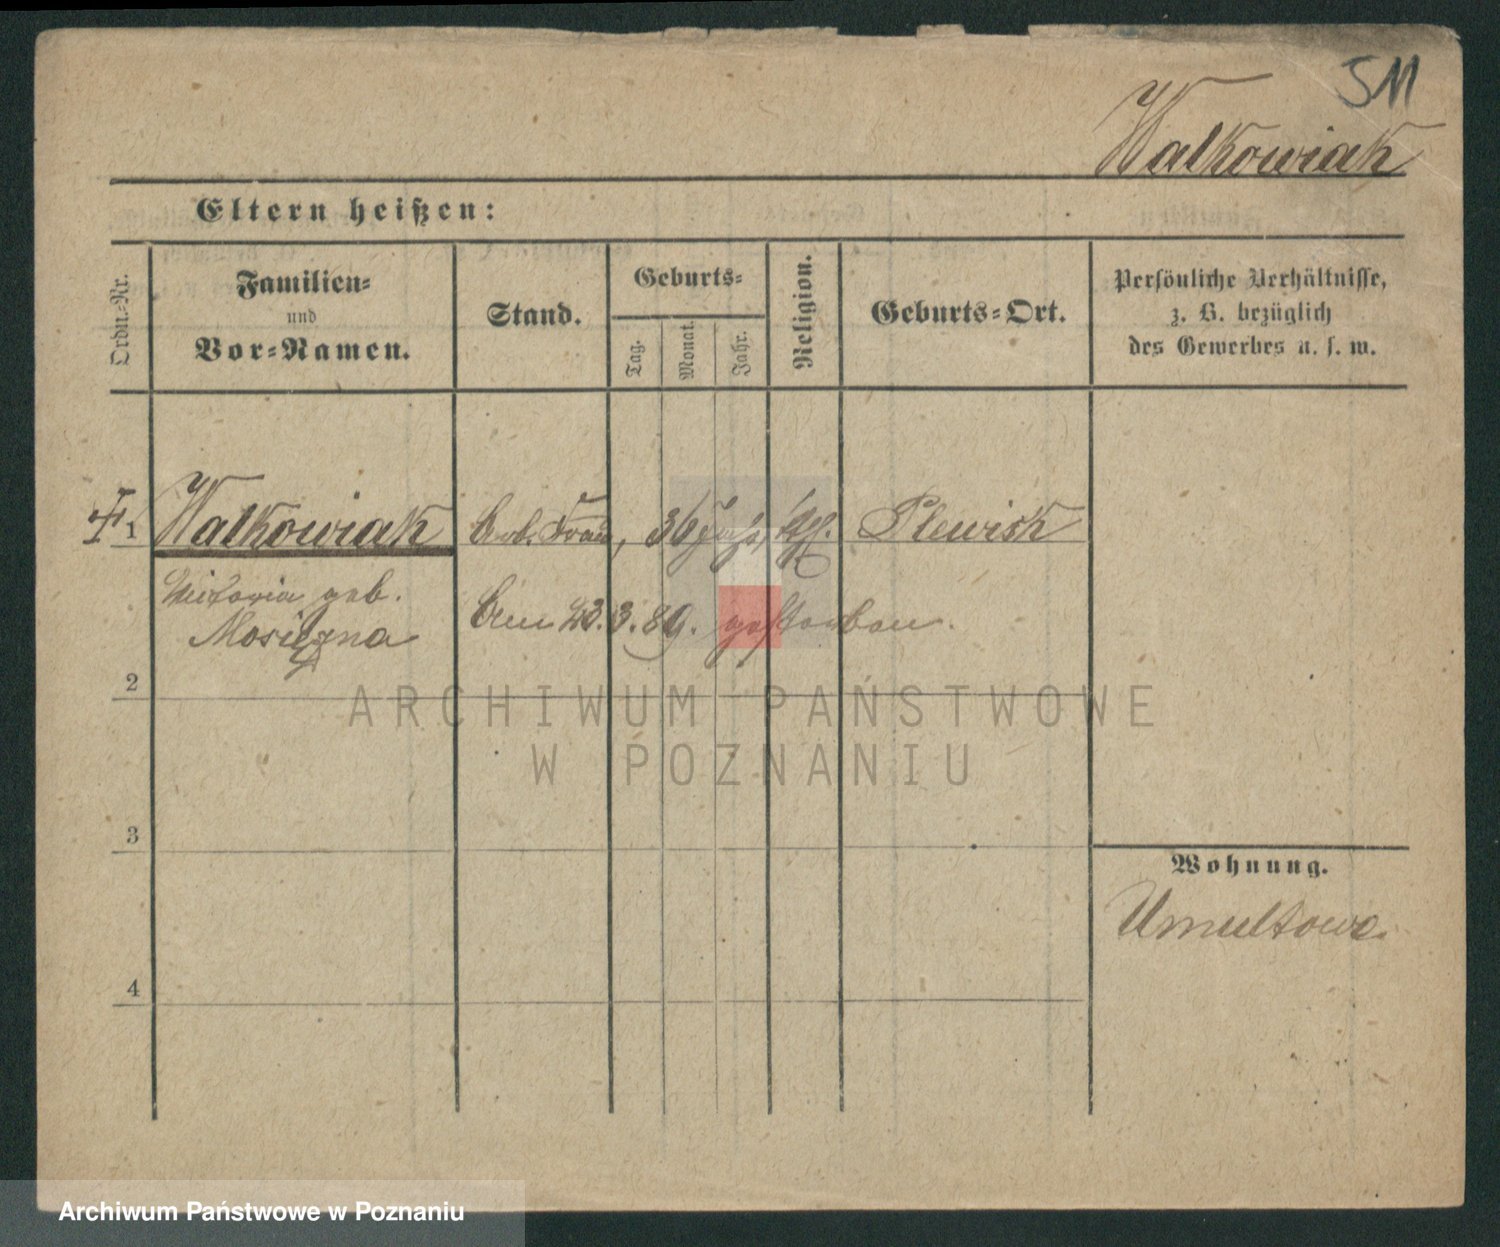 511
Walkowiak
Eltern heißen:
Ordn.-Nr.
Familien-
und
Vor-Namen.
Stand.
Geburts-
Tag.
Monat.
Jahr.
Religion.
Geburts-Ort.
Persönliche Verhältnisse,
z. B. bezüglich
des Gewerbes u. s. w.
1 Walkowiak Arb. Frau, 36 Plewisk
Victoria geb.
Am 23.3.89. gestorben.
2
ARCHIWUM PAŃSTWOWE
W POZNANIU
3
Wohnung.
Umultowo.
4
Archiwum Państwowe w Poznaniu